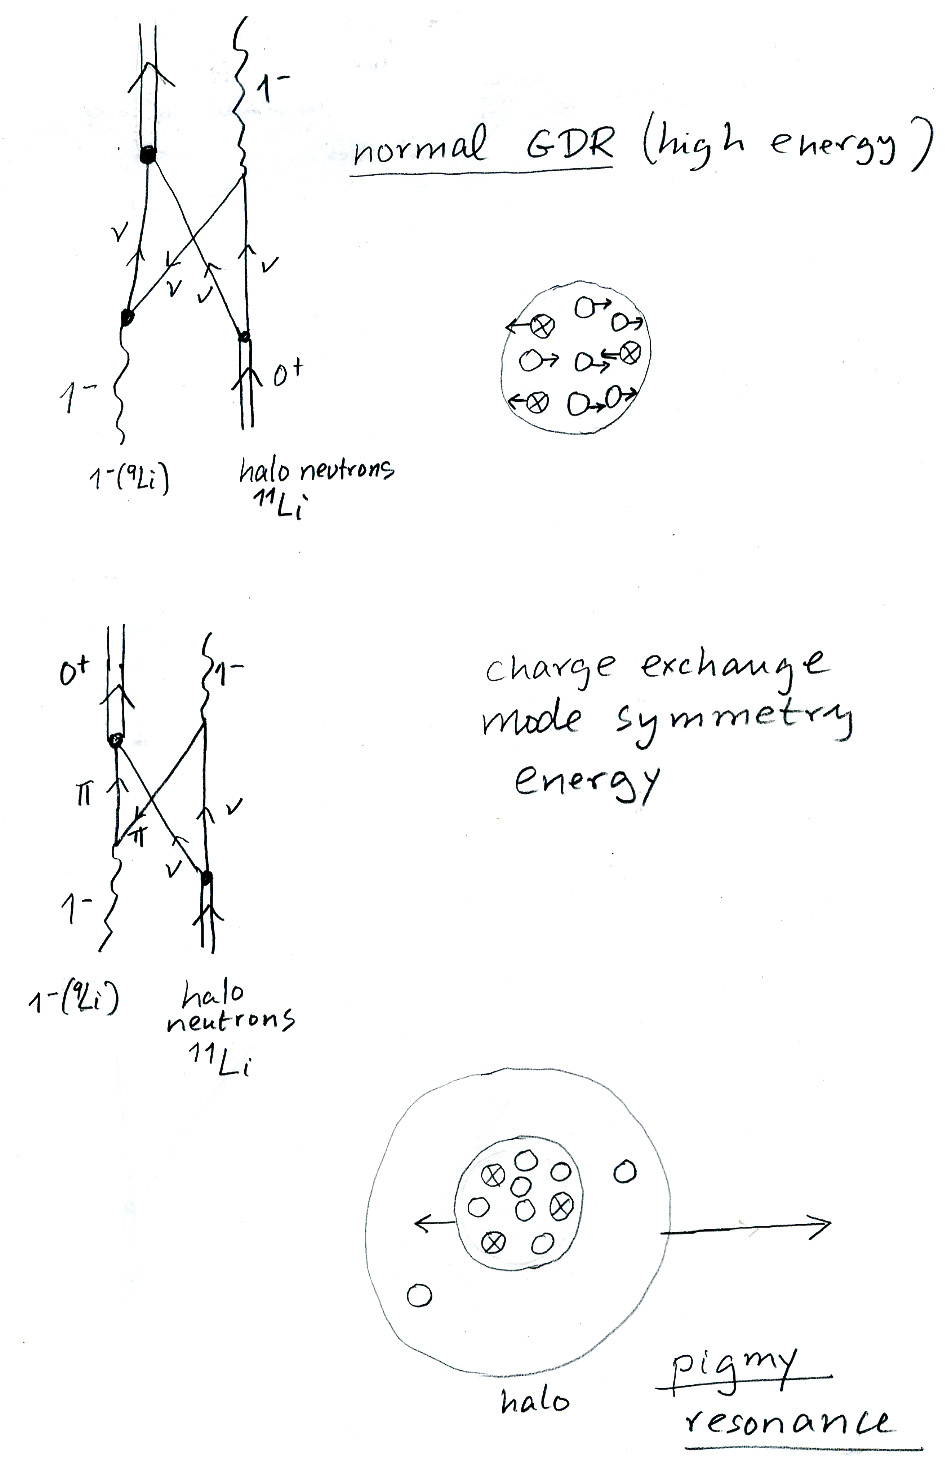 1-
normal GDR (high energy)
ν
ν
ν
ν
1-
0+
1-(9Li)
halo neutrons
11Li
0+
1-
charge exchange
mode symmetry
energy
π
ν
π
ν
1-
1-(9Li)
halo
neutrons
11Li
halo
pigmy
resonance